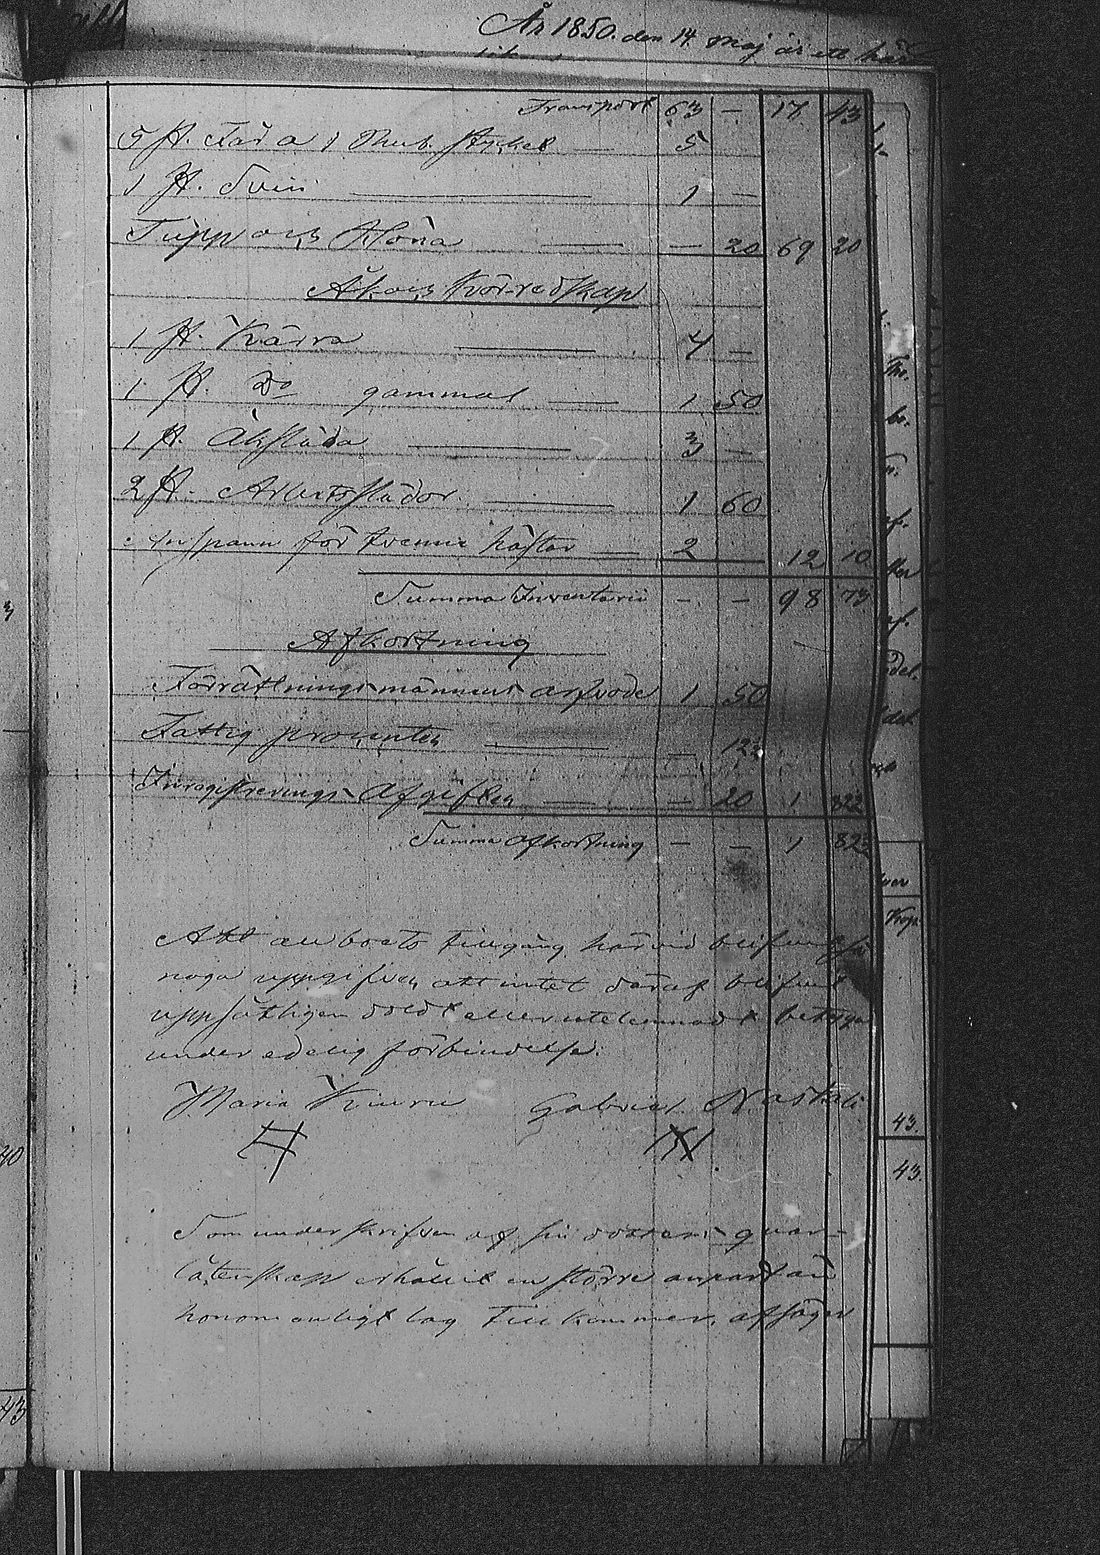 År 1850. den 14 Maj är
Transport 63 – 17 43
5 st. Får a 1 Rub. stycket — 5
1 st. Svin — 1 –
Tupp och Höna — – 20 69 20
Åk och Körredskap
1 st. Kärra — 4 –
1 st. Do gammal — 1 50
1 st. Åksläda — 3 –
2 st. Arbetsslädor — 1 60
Anspann för tvenne hästar — 2 12 10
Summa Inventarii – – 98 73
Afkortning
Förrättningsmännens arfvode 1 50
Fattig procenten — – 12½
Inregistrerings Afgiften — – 20 1 82½
Summa afkortning – – 1 82½
Att all boets tillgång härvid blifvit så
noga uppgifven att intet däraf blifvit
uppsåtligen doldt eller utelemnadt betygas
under edelig förbindelse.
Maria Kiuru Gabriel Naskali
Som underskrifven af sin quar-
låtenskap erhållit en större anpart än
honom enligt lag tillkommer, afsäger
43.
43.